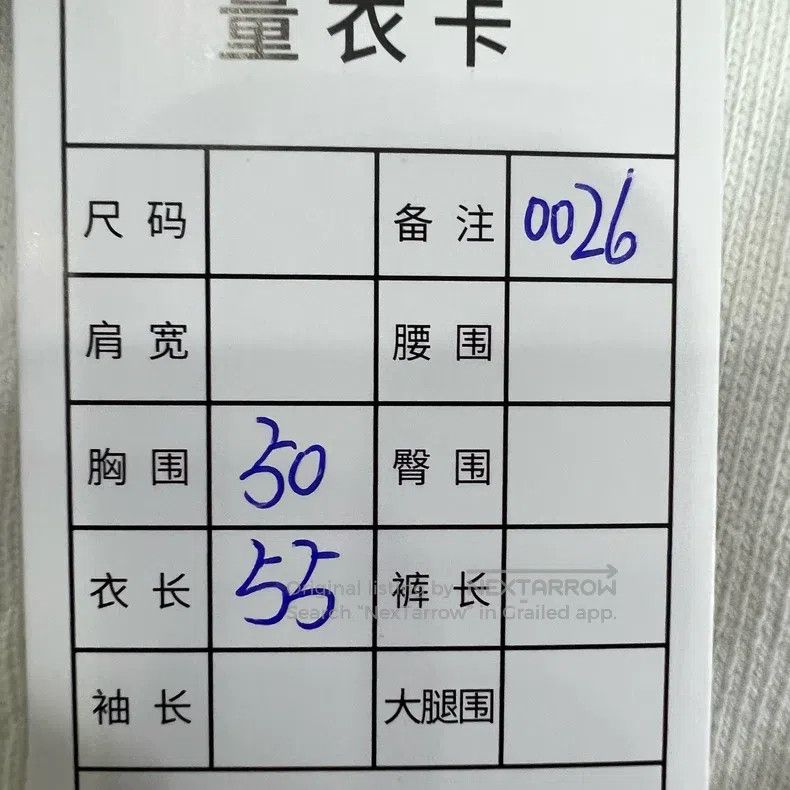 量衣卡
尺码 备注 0026
肩宽 腰围
胸围 50 臀围
衣长 55 裤长
Original listing by NEXTARROW
Search "NexTarrow" in Grailed app.
袖长 大腿围